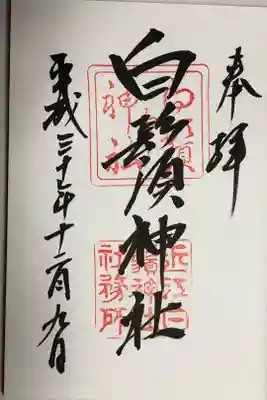 奉拝
白鬚神社
白鬚神社
近江白鬚神社社務所
平成三十年十二月九日